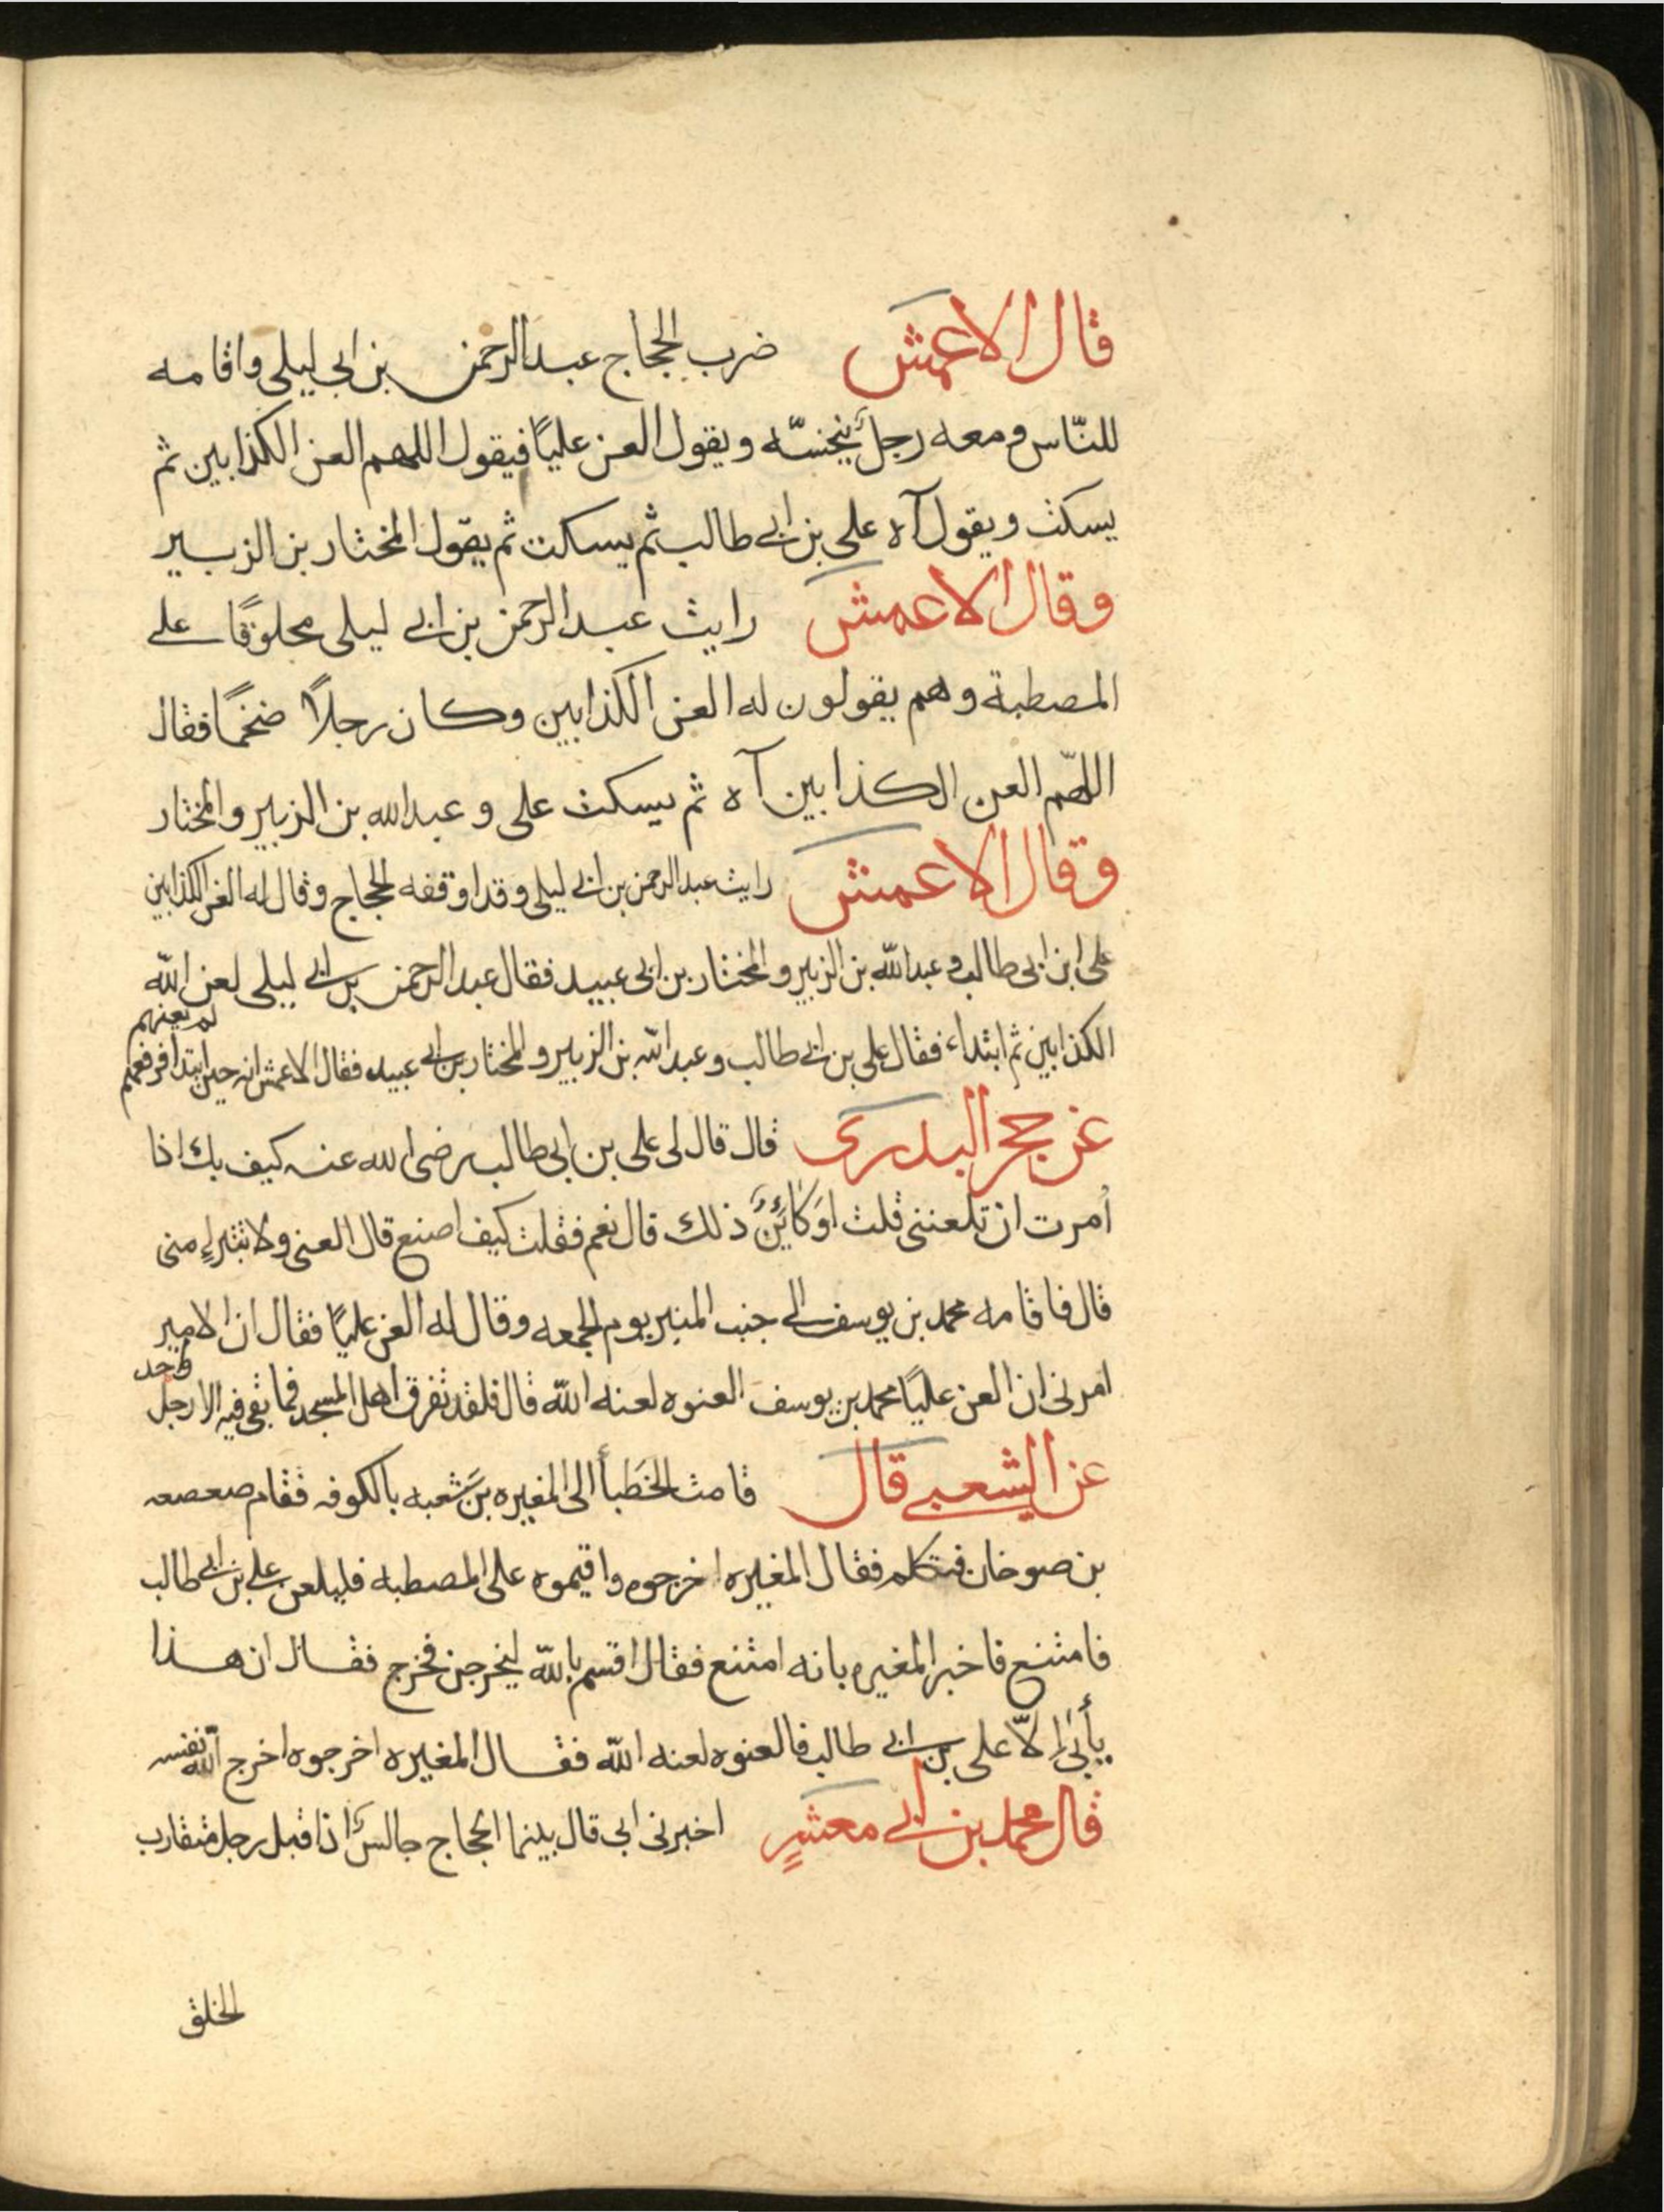 قال الاعمش ضرب الحجاج عبد الرحمن بن ابي ليلى واقامه
للنّاس ومعه رجلٌ ينخسّه ويقول العن عليًا فيقول اللهم العن الكذابين ثم
يسكت ويقول آه علي بن ابي طالب ثم يسكت ثم يقول المختار بن الزبير
وقال الاعمش رايت عبد الرحمن بن ابي ليلى محلوقًا على
المصطبة وهم يقولون له العن الكذابين وكان رجلاً ضخمًا فقال
اللهّم العن الكذابين آه ثم يسكت علي و عبد الله بن الزبير والمختار
وقال الاعمش رايت عبد الرحمن بن ابي ليلى وقد اوقفه الحجاج وقال له العن الكذابين
على ابن ابي طالب وعبد الله بن الزبير والمختار بن ابي عبيد فقال عبد الرحمن بن ابي ليلى لعن الله
الكذابين ثم ابتداء فقال علي بن ابي طالب وعبد الله بن الزبير والمختار بن ابي عبيد فقال الاعمش انه حين ابتدا فرفعهم
لم يعنهم
عن حجر البدرى قال قال لى على بن ابى طالب رضى الله عنه كيف بك اذا
اُمرت ان تلعننى قلت اوَكائِنٌ ذلك قال نعم فقلت كيف اصنع قال العنى ولا تتبراء منى
قال فاقامه محمد بن يوسف الى جنب المنبر يوم الجمعه وقال له العن عليًا فقال ان الامير
امرنى ان العن عليًا محمد بن يوسف العنوه لعنه الله قال فلقد تفرق اهل المسجد فما بقى فيه الا رجل
واحد
عن الشعبي قال قامت الخطبأ الى المغيره بن شعبه بالكوفه فقام صعصعه
بن صوخان فتكلم فقال المغيره اخرجوه واقيموه على المصطبه فليلعن على بن ابى طالب
فامتنع فاخبر المغيره بانه امتنع فقال اقسم بالله ليخرجن فخرج فقال ان هذا
يأبى الاّ على بن ابى طالب فالعنوه لعنه الله فقال المغيره اخرجوه اخرج الله نفسه
قال محمد بن ابى معشرٍ اخبرنى ابى قال بينما الحجاج جالسٌ اذ اقبل رجل متقارب
الخلق